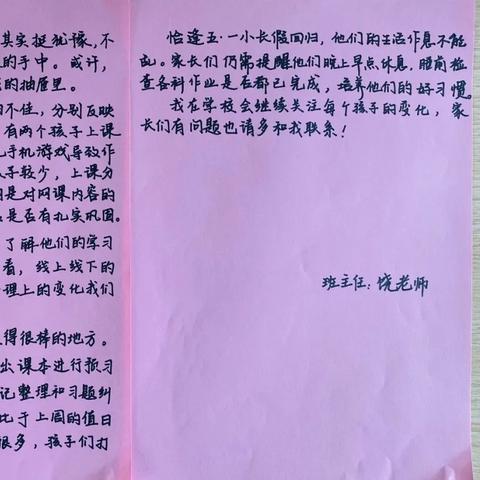 其实挺犹豫,不
的手中。或许,
的抽屉里。
不佳,分别反映
有两个孩子上课
手机游戏导致作
子较少,上课分
是对网课内容的
是否有扎实巩固。
了解他们的学习
看,线上线下的
理上的变化我们
得很棒的地方。
出课本进行预习
记整理和习题纠
比于上周的值日
很多,孩子们打
恰逢五·一小长假回归,他们的生活作息不能
乱。家长们仍需提醒他们晚上早点休息,睡前检
查各科作业是否都已完成,培养他们的好习惯。
我在学校会继续关注每个孩子的变化,家
长们有问题也请多和我联系!
班主任:饶老师